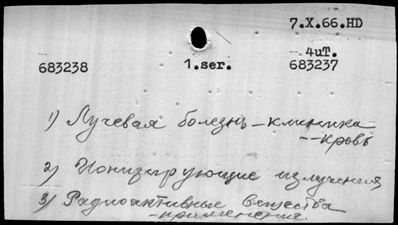 7.X.66.HD
4uT.
683238 1.ser. 683237
1) Лучевая болезнь - клиника
-- кровь
2) Ионизирующие излучения
3) Радиоактивные вещества
- применение.